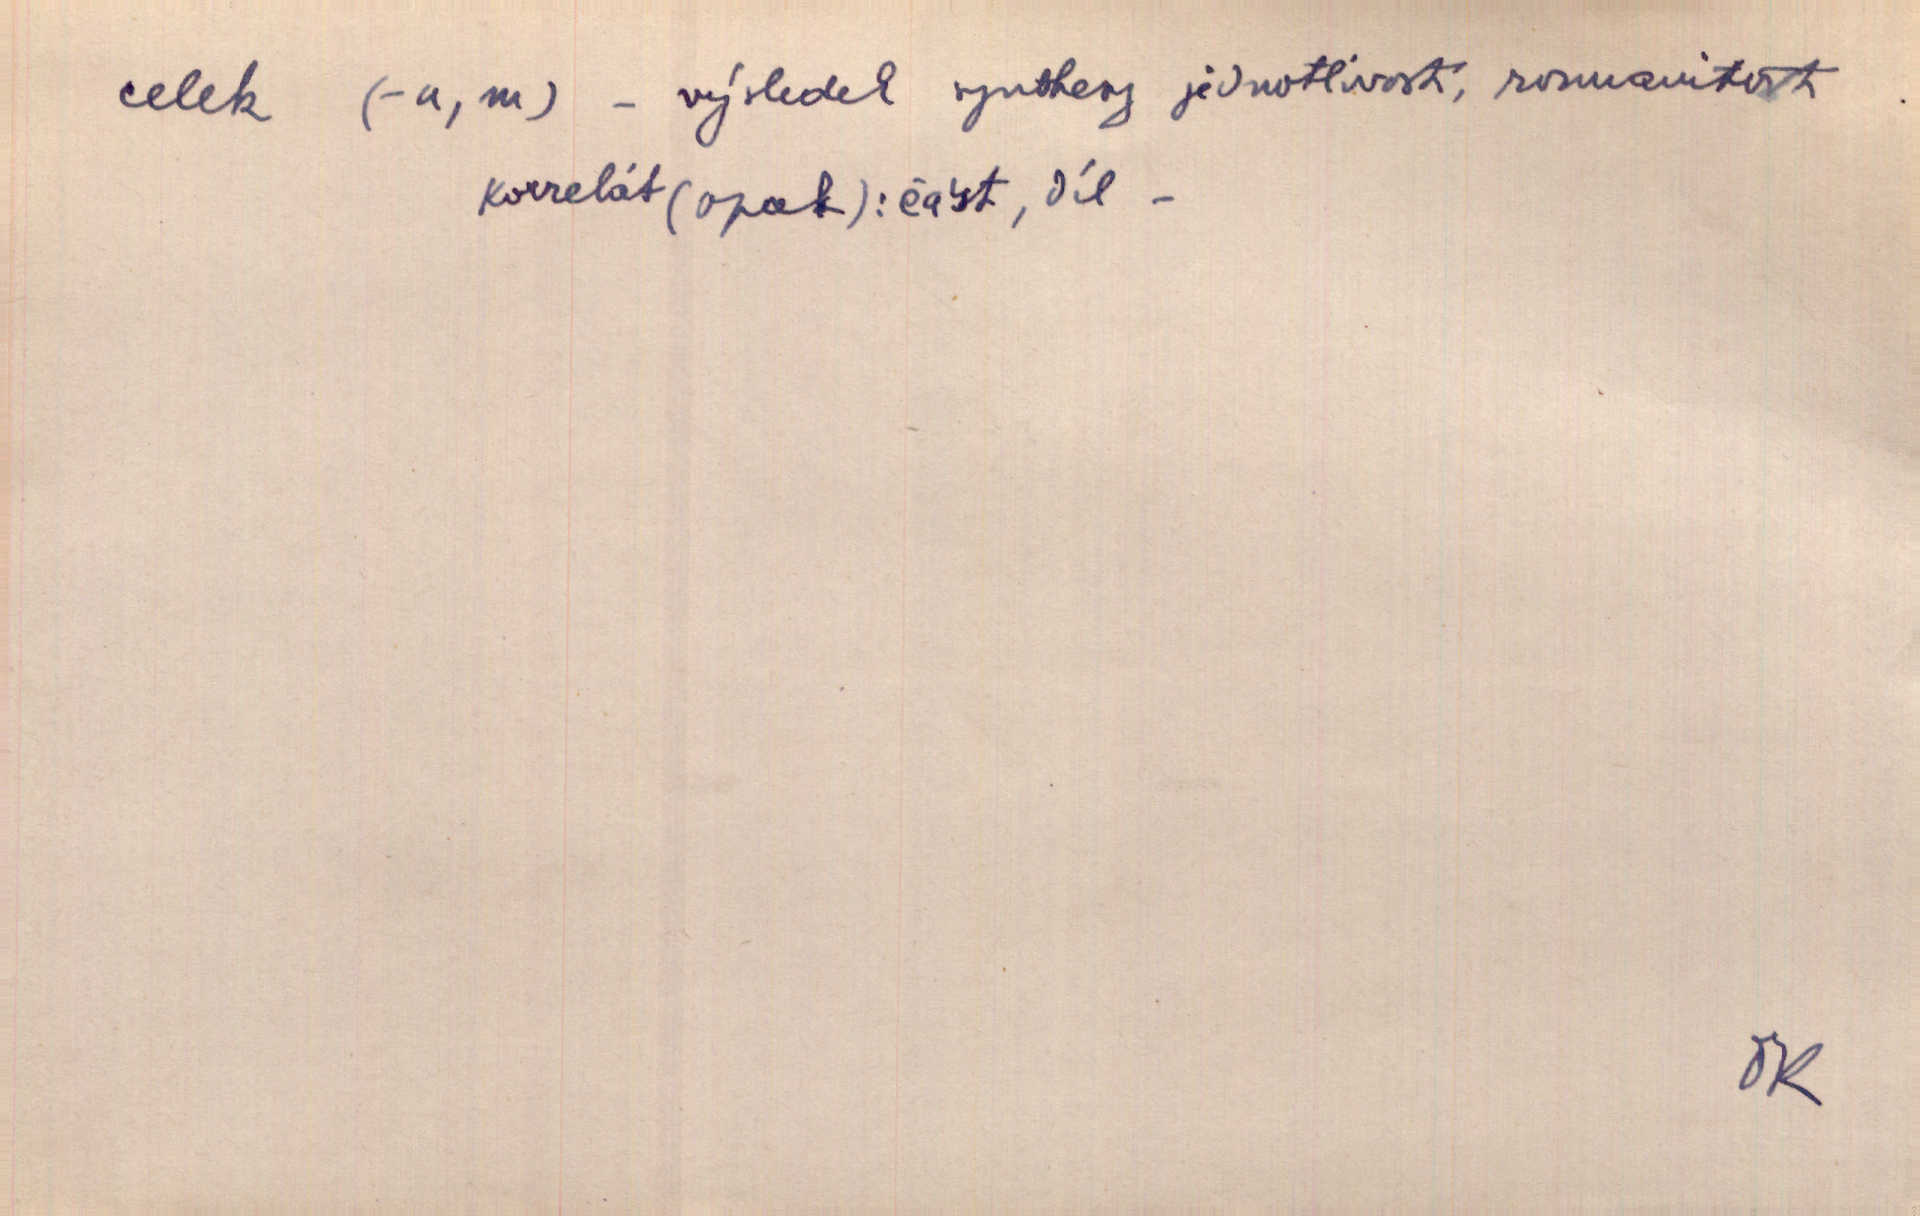 celek (-u, m) - výsledek synthesy jednotlivostí, rozmanitostí
korrelát (opak): část, díl -
JK